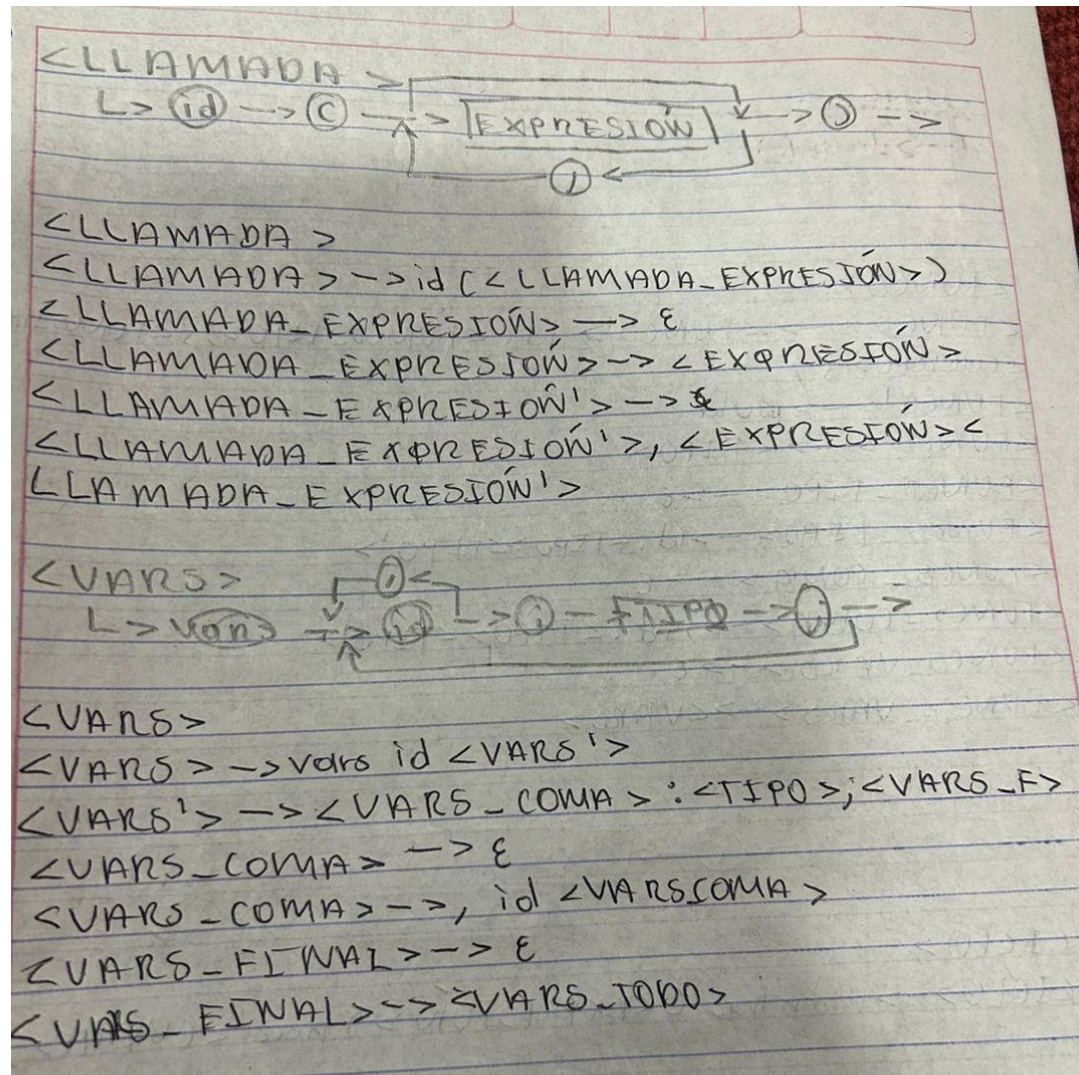 <LLAMADA>
L> id -> ( -> EXPRESIÓN -> ) ->
,
<LLAMADA>
<LLAMADA> -> id (<LLAMADA_EXPRESIÓN>)
<LLAMADA_EXPRESIÓN> -> ε
<LLAMADA_EXPRESIÓN> -> <EXPRESIÓN>
<LLAMADA_EXPRESIÓN'> ->
<LLAMADA_EXPRESIÓN'>, <EXPRESIÓN><
LLAMADA_EXPRESIÓN'>
<VARS>
,
L> vars -> id -> : - TIPO -> ; ->
<VARS>
<VARS> -> vars id <VARS'>
<VARS'> -> <VARS_COMA> : <TIPO>; <VARS_F>
<VARS_COMA> -> ε
<VARS_COMA> ->, id <VARSCOMA>
<VARS_FINAL> -> ε
<VARS_FINAL> -> <VARS_TODO>